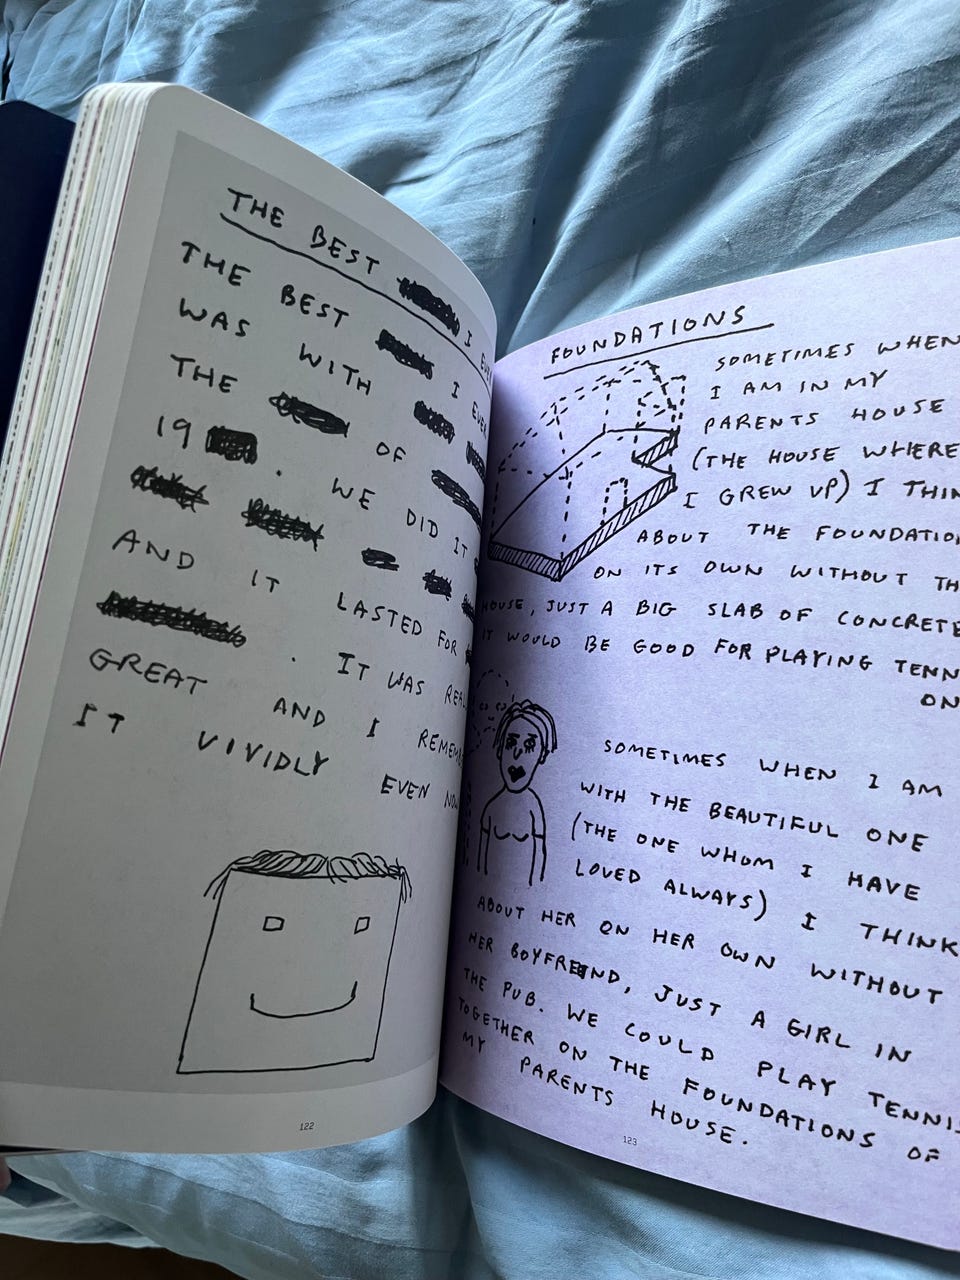 THE BEST I EVER
THE BEST I EVER
WAS WITH
THE OF
19 . WE DID IT
AND IT LASTED FOR
. IT WAS REAL
GREAT AND I REMEMB
IT VIVIDLY EVEN NOW
122
FOUNDATIONS
SOMETIMES WHEN
I AM IN MY
PARENTS HOUSE
(THE HOUSE WHERE
I GREW UP) I THIN
ABOUT THE FOUNDATION
ON ITS OWN WITHOUT TH
HOUSE, JUST A BIG SLAB OF CONCRETE
IT WOULD BE GOOD FOR PLAYING TENN
ON
SOMETIMES WHEN I AM
WITH THE BEAUTIFUL ONE
(THE ONE WHOM I HAVE
LOVED ALWAYS) I THINK
ABOUT HER ON HER OWN WITHOUT
HER BOYFREIND, JUST A GIRL IN
THE PUB. WE COULD PLAY TENNIS
TOGETHER ON THE FOUNDATIONS OF
MY PARENTS HOUSE.
123